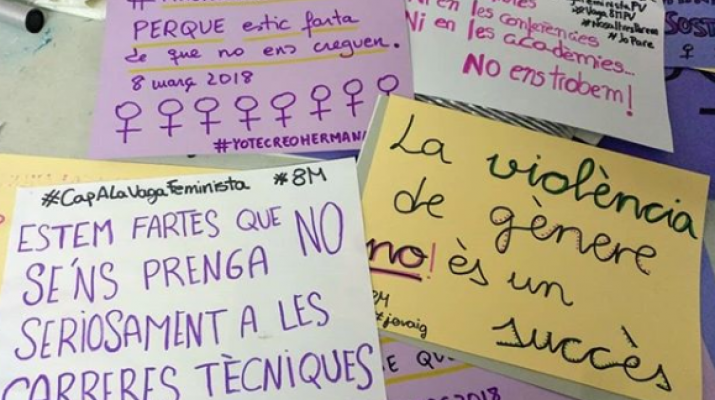 PERQUE estic farta
de que no ens creguen.
8 març 2018
#YOTECREOHERMANA
Ni en les conferències
Ni en les acadèmies...
No ens trobem!
#CapALaVagaFeminista #8M
ESTEM FARTES QUE NO
SE'NS PRENGA
SERIOSAMENT A LES
CARRERES TÈCNIQUES
La violència
de gènere
no! ès un
succès
#jovaig
QU
2018